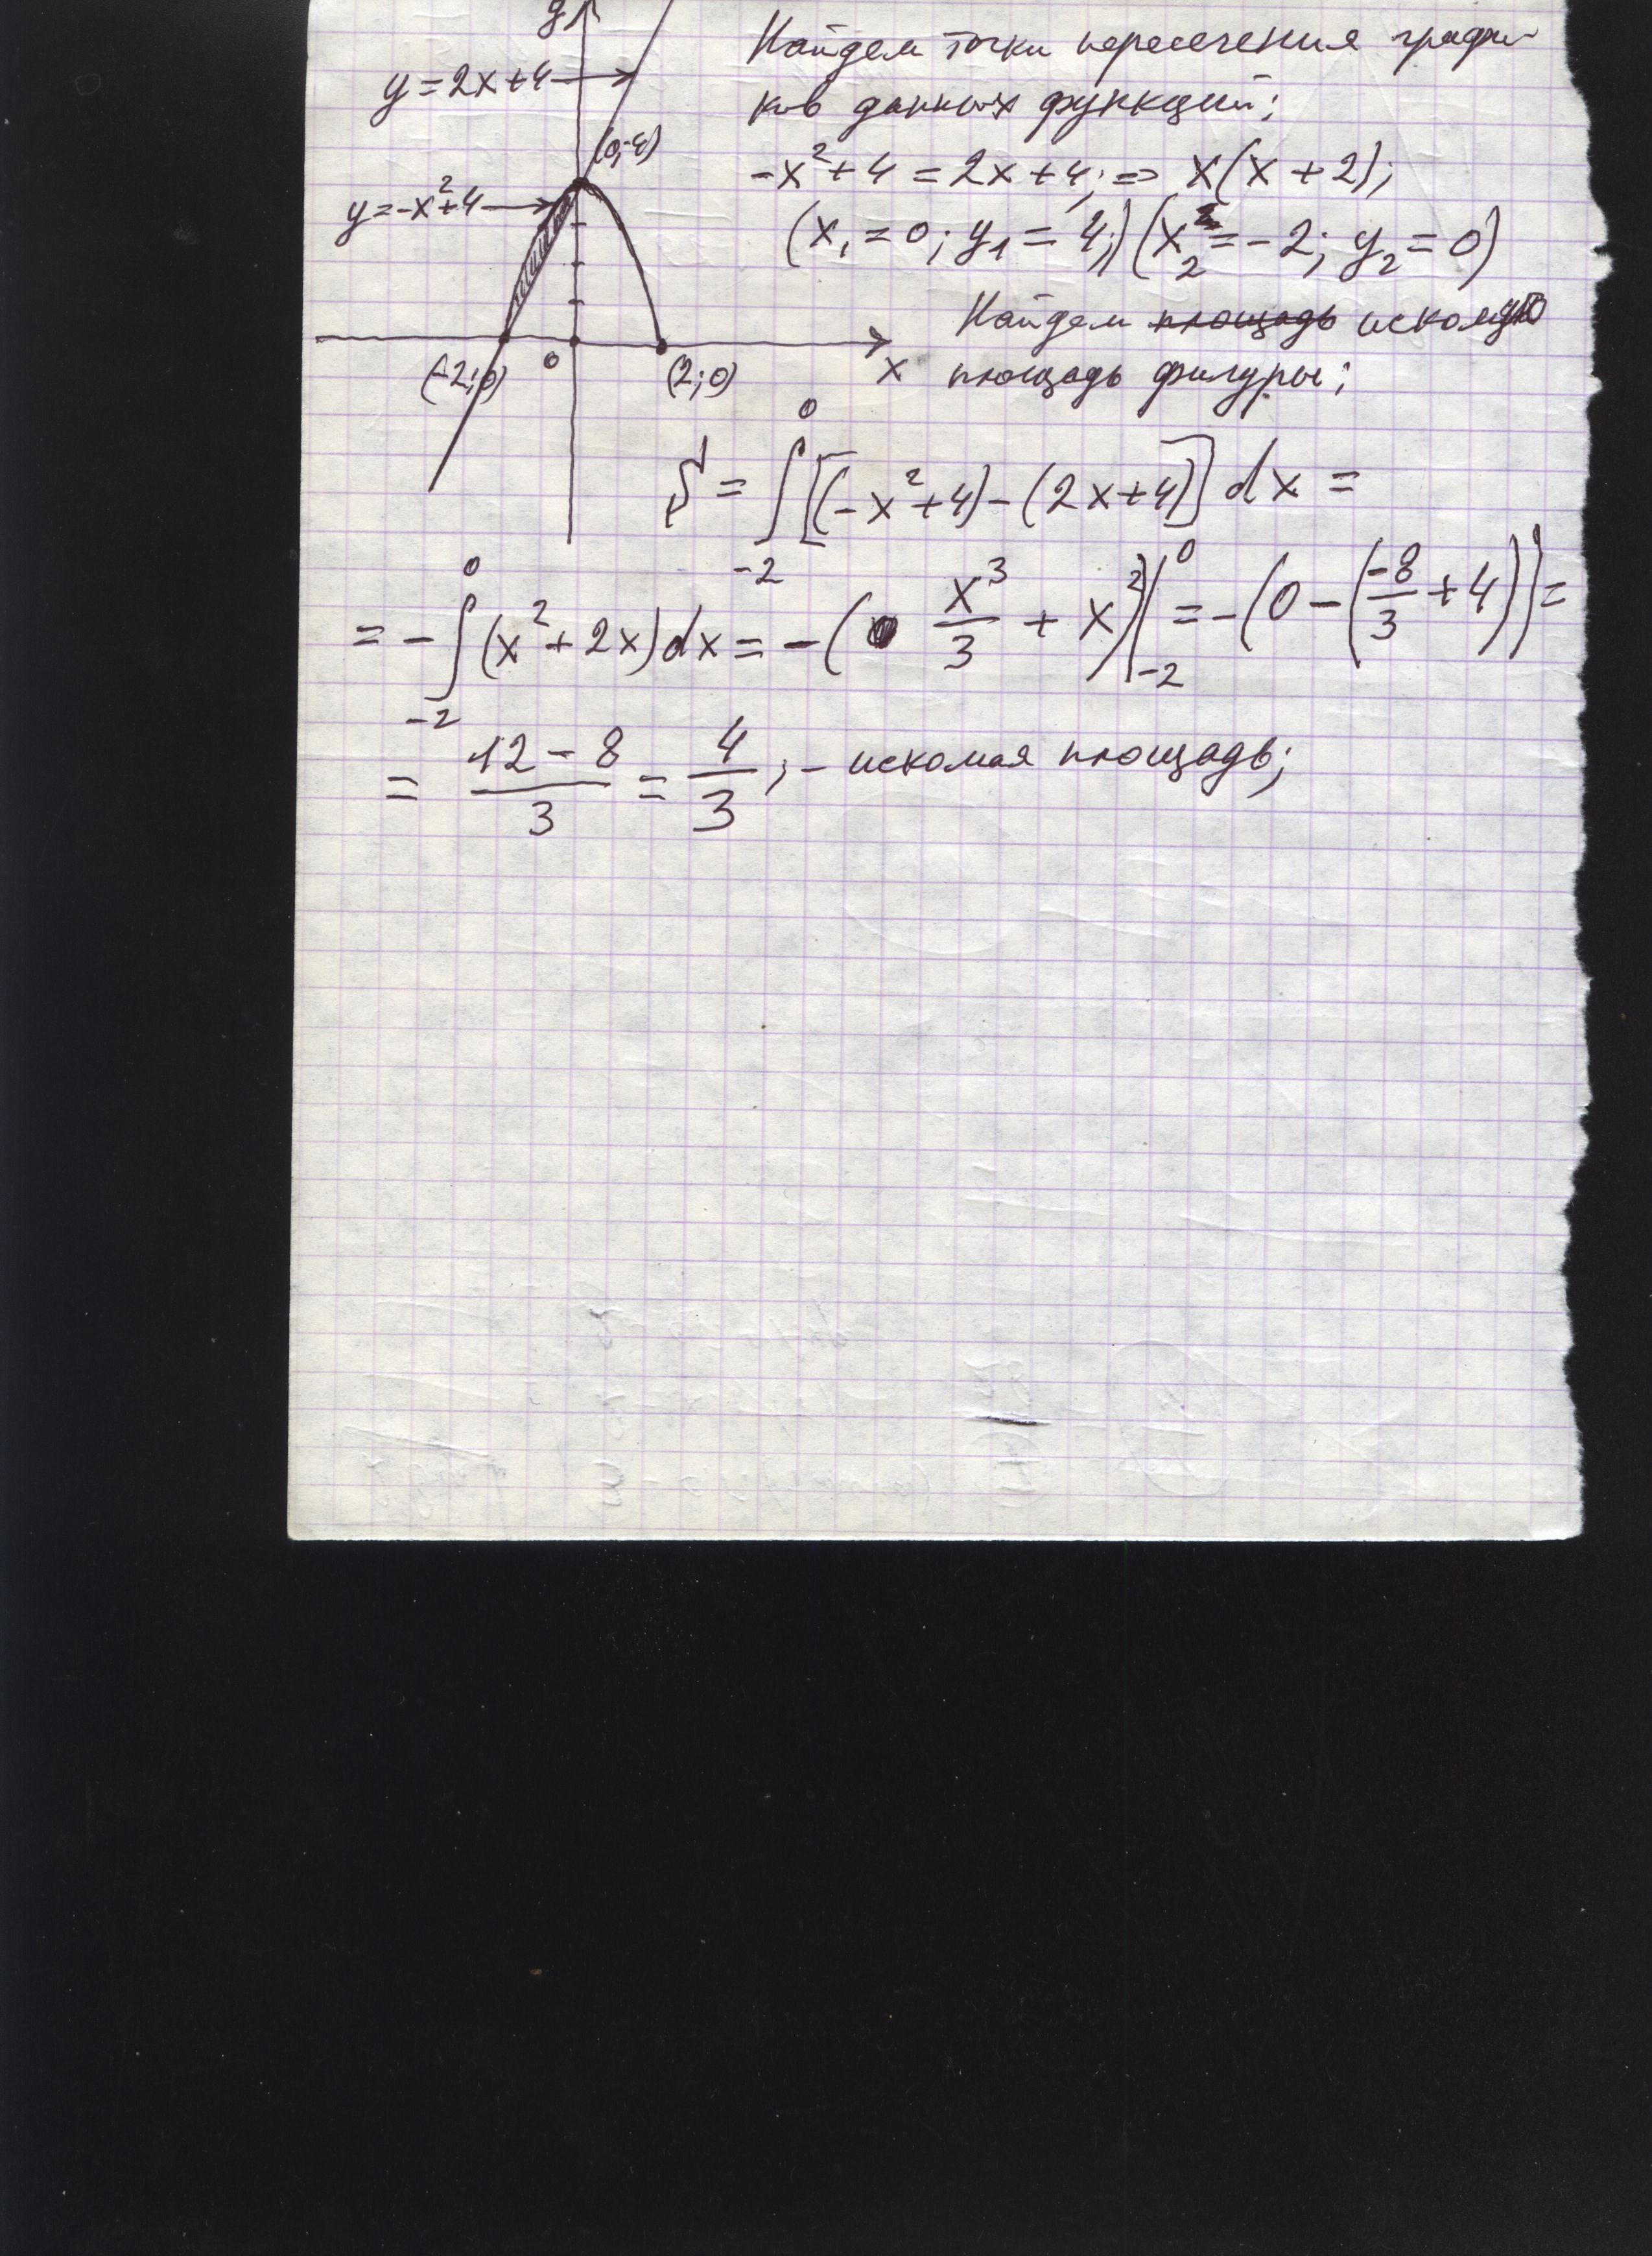 y
y=2x+4
(0;4)
y=-x²+4
(-2;0)
0
(2;0)
x
Найдем точки пересечения графи-
ков данных функций;
-x²+4=2x+4; => x(x+2);
(x₁=0; y₁=4;) (x₂=-2; y₂=0)
Найдем площадь искомую
площадь фигуры;
S=∫₋₂⁰[(-x²+4)-(2x+4)]dx=
=-∫₋₂⁰(x²+2x)dx=-(x³/3+x²)|₋₂⁰=-(0-(-8/3+4))=
=(12-8)/3=4/3; - искомая площадь;